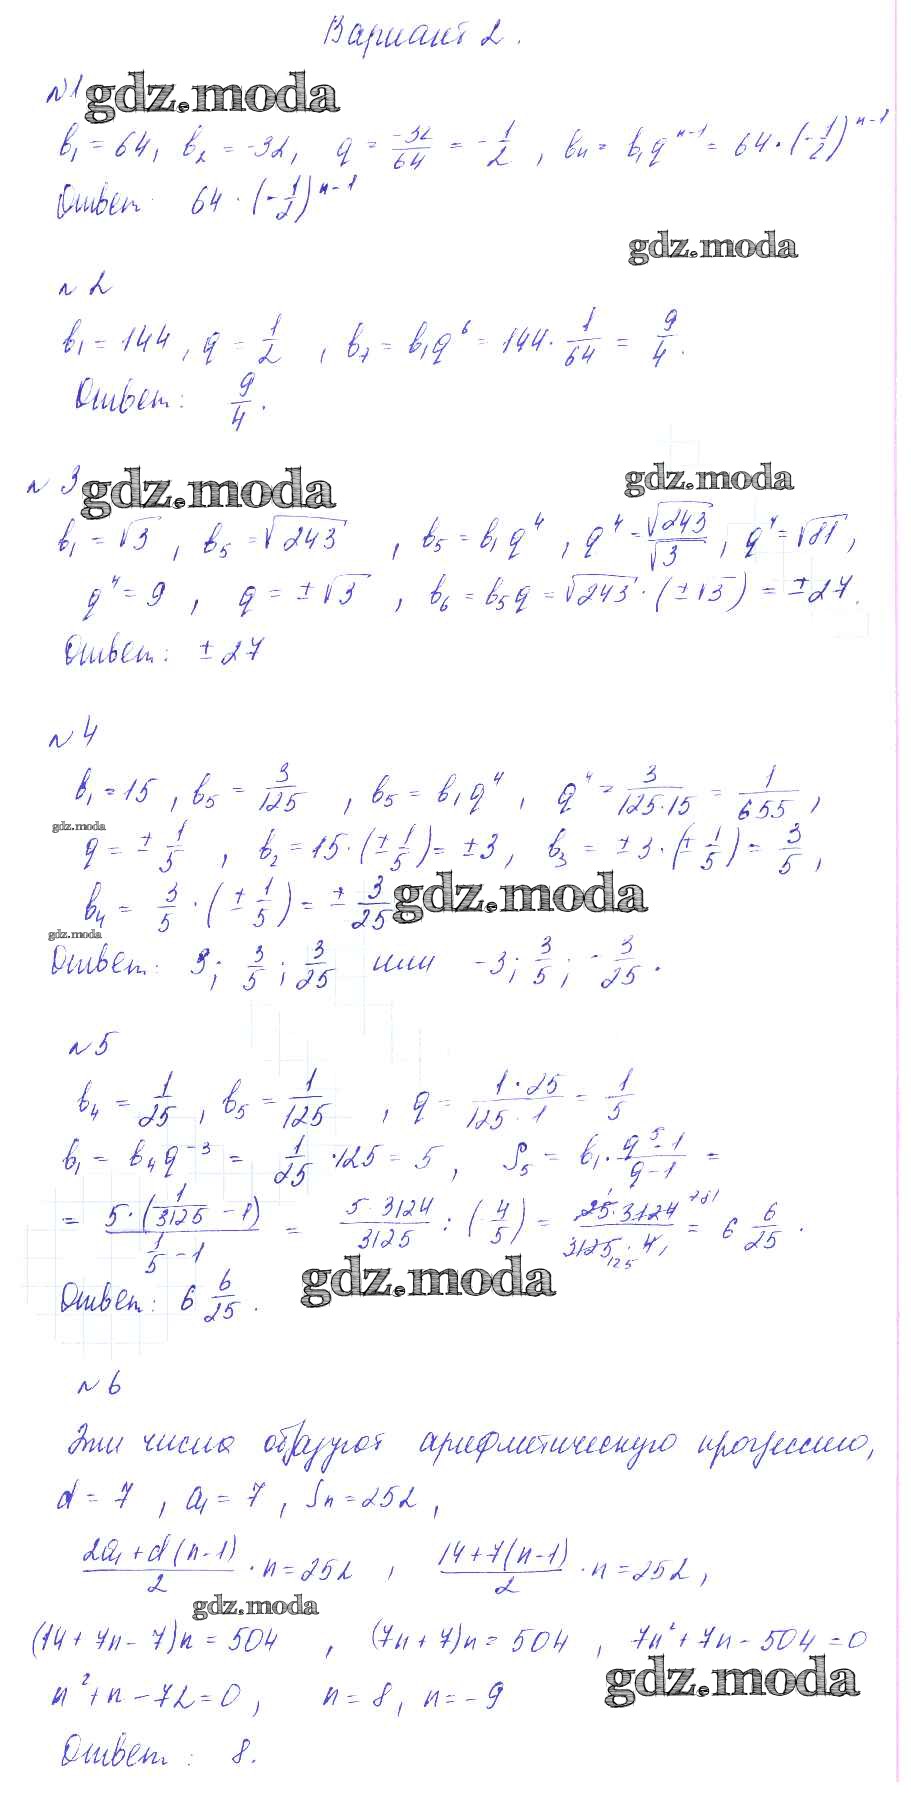 Вариант 2.
№1 gdz.moda
b₁ = 64, b₂ = -32, q = -32/64 = -1/2, bₙ = b₁qⁿ⁻¹ = 64·(-1/2)ⁿ⁻¹
Ответ: 64·(-1/2)ⁿ⁻¹
gdz.moda
№2
b₁ = 144, q = 1/2, b₇ = b₁q⁶ = 144·1/64 = 9/4.
Ответ: 9/4.
№3 gdz.moda gdz.moda
b₁ = √3, b₅ = √243, b₅ = b₁q⁴, q⁴ = √243/√3, q⁴ = √81,
q⁴ = 9, q = ±√3, b₆ = b₅q = √243·(±√3) = ±27.
Ответ: ±27
№4
b₁ = 15, b₅ = 3/125, b₅ = b₁q⁴, q⁴ = 3/(125·15) = 1/655,
gdz.moda
q = ±1/5, b₂ = 15·(±1/5) = ±3, b₃ = ±3·(±1/5) = 3/5,
b₄ = 3/5·(±1/5) = ±3/25 gdz.moda
gdz.moda
Ответ: 3; 3/5; 3/25 или -3; 3/5; -3/25.
№5
b₄ = 1/25, b₅ = 1/125, q = (1·25)/(125·1) = 1/5
b₁ = b₄q⁻³ = 1/25·125 = 5, S₅ = b₁·(q⁵-1)/(q-1) =
= 5·(1/3125 - 1)/(1/5 - 1) = (5·3124)/3125 : (-4/5) = (25·3124)/(3125·4) = 6 6/25.
gdz.moda
Ответ: 6 6/25.
№6
Эти числа образуют арифметическую прогрессию,
d = 7, a₁ = 7, Sn = 252,
(2a₁ + d(n-1))/2 · n = 252, (14 + 7(n-1))/2 · n = 252,
gdz.moda
(14 + 7n - 7)n = 504, (7n + 7)n = 504, 7n² + 7n - 504 = 0
gdz.moda
n² + n - 72 = 0, n = 8, n = -9
Ответ: 8.